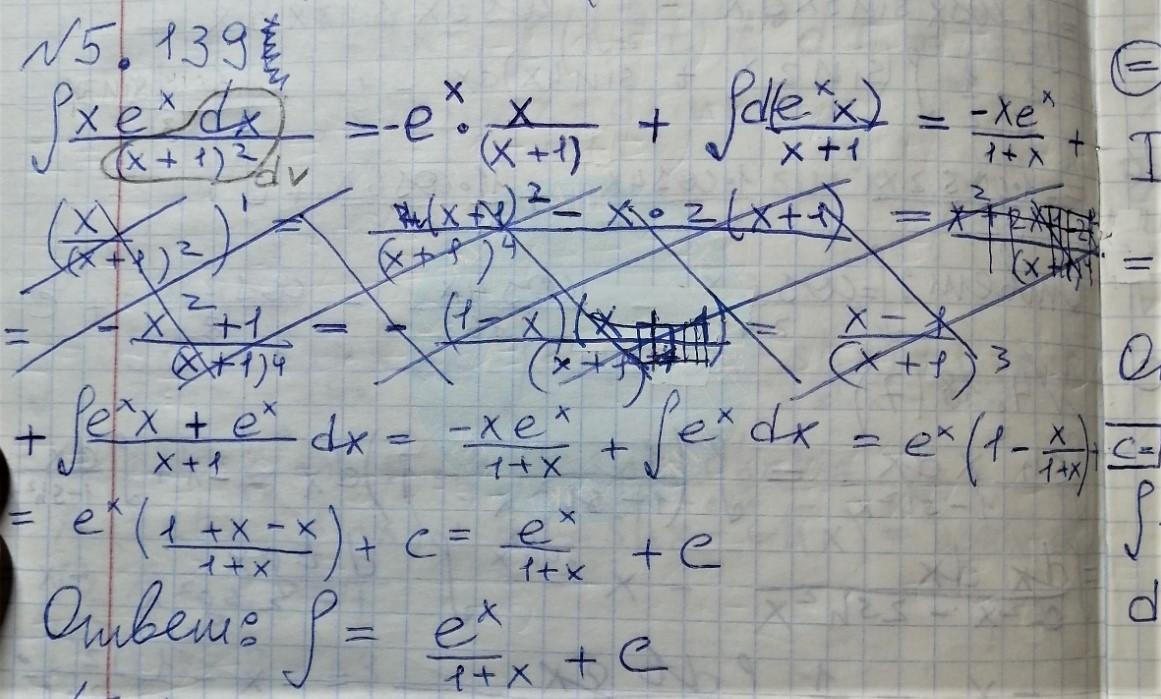 №5.139
∫ x eˣ dx / (x+1)² dv = -eˣ · x/(x+1) + ∫ d(eˣx)/(x+1) = -xeˣ/(1+x) +
(x/(x+1)²)' = (x+1)² - x·2(x+1) / (x+1)⁴ =
= - x²+1/(x+1)⁴ = - (1-x)(x / (x+1)⁴ = x-1/(x+1)³
+ ∫ (eˣx + eˣ)/(x+1) dx = -xeˣ/(1+x) + ∫ eˣ dx = eˣ(1 - x/(1+x)) +
= eˣ((1+x-x)/(1+x)) + c = eˣ/(1+x) + c
Ответ: ∫ = eˣ/(1+x) + c